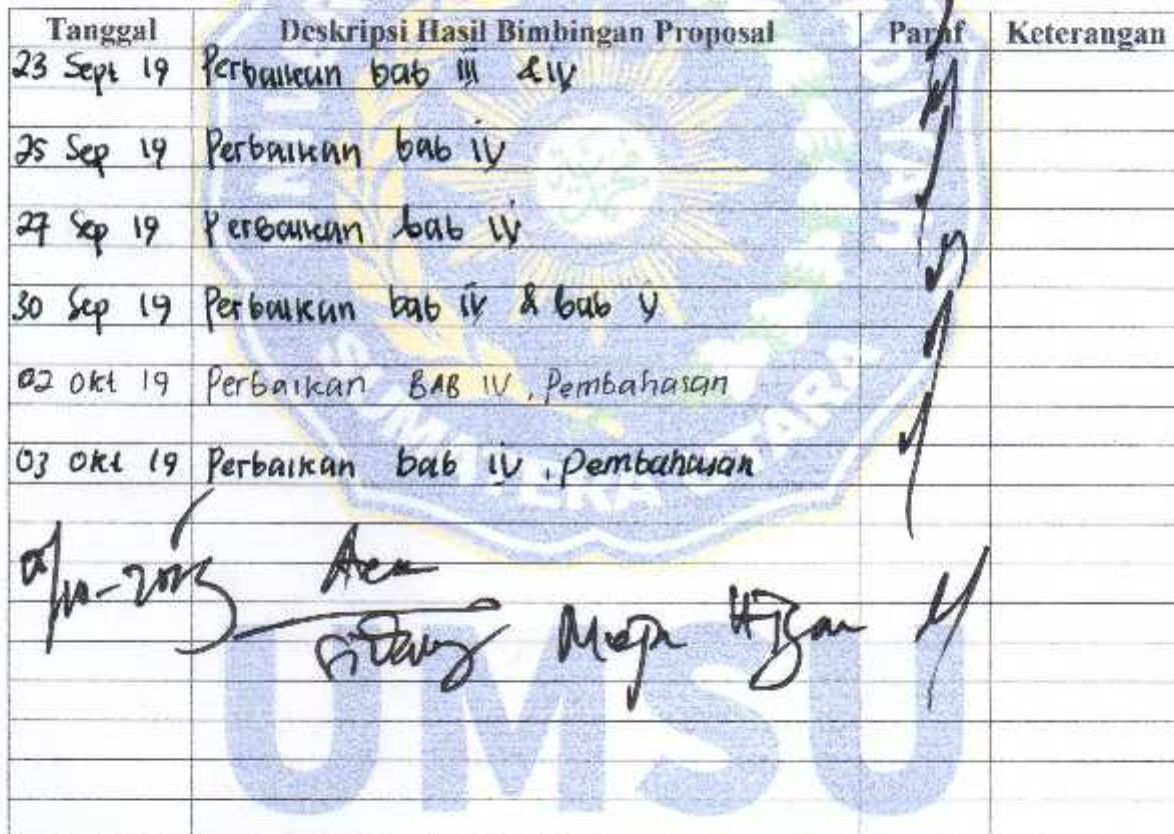 Tanggal Deskripsi Hasil Bimbingan Proposal Paraf Keterangan
23 Sept 19 Perbaikan bab III & IV
25 Sep 19 Perbaikan bab IV
27 Sep 19 Perbaikan bab IV
30 Sep 19 Perbaikan bab IV & bab V
02 Okt 19 Perbaikan BAB IV, Pembahasan
03 Okt 19 Perbaikan bab IV, Pembahasan
Acc
Sidang Meja Hijau
SUMATERA UTARA
UMSU